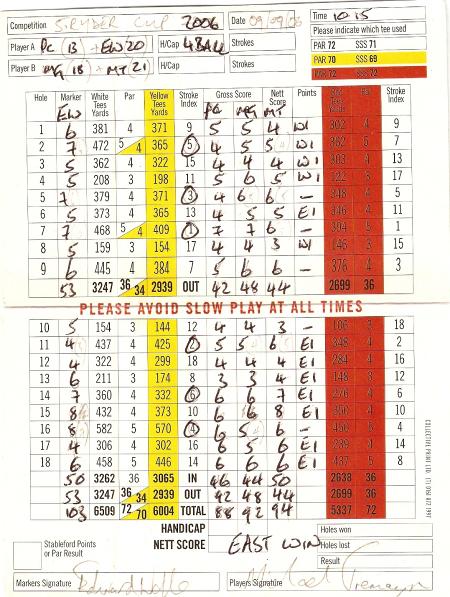 Competition S. RYDER CUP 2006 Date 09/09/06 Time 10.15
Please indicate which tee used
Player A PC (13) + EW(20) H/Cap 4 BALL Strokes
PAR 72 SSS 71
PAR 70 SSS 69
Player B MG (18) + MT(21) H/Cap Strokes
PAR 72 SSS 72
Hole Marker White Tees Yards Par Yellow Tees Yards Stroke Index Gross Score Nett Score Points Red Tees Yards Par Stroke Index
EW PC MG MT
1 6 381 4 371 9 5 5 4 W1 302 4 9
2 7 472 5 4 365 5 4 5 5 W1 362 5 7
3 5 362 4 322 15 4 4 4 W1 303 4 13
4 5 208 3 198 11 5 6 5 W1 122 3 17
5 7 379 4 371 3 4 6 6 – 348 4 5
6 5 373 4 365 13 4 5 5 E1 346 4 11
7 7 468 5 4 409 1 7 7 6 – 394 5 1
8 5 159 3 154 17 4 4 3 W1 146 3 15
9 6 445 4 384 7 5 6 6 – 376 4 3
53 3247 36 34 2939 OUT 42 48 44 2699 36
PLEASE AVOID SLOW PLAY AT ALL TIMES
10 5 154 3 144 12 4 4 3 – 106 3 18
11 4 437 4 425 2 5 5 6 E1 348 4 2
12 4 322 4 299 18 4 4 4 E1 284 4 16
13 6 211 3 174 8 3 3 4 E1 148 3 12
14 7 360 4 332 6 6 6 7 E1 276 4 6
15 8 432 4 373 10 6 6 8 E1 4 10
16 8 582 5 570 4 6 5 6 – 4
17 4 306 4 302 16 6 5 6 E1 289 4 14
18 6 458 5 446 14 6 6 6 E1 437 5 8
50 3262 36 3065 IN 46 44 50 2638 36
53 3247 36 34 2939 OUT 42 48 44 2699 36
103 6509 72 70 6004 TOTAL 88 92 94 5337 72
HANDICAP Holes won
Stableford Points or Par Result NETT SCORE EAST WIN Holes lost
Result
Markers Signature Players Signature
COLLECTIVE PRINT LTD.